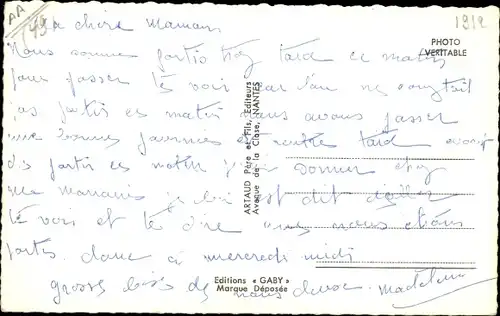 AA
(49)
1919
Ma chère Maman
Nous somme partis trop tard ce matin
pour passer te voir car l'on ne comptait
pas partir ce matin nous avons passer
une bonne journée et rentre tard avant
de partir ce matin donner chez
une maman je lui est dit d'aller
te voir et te dire que nous étions
partis. donc à mercredi midi
grosses bises de nous deux. Madeleine
PHOTO
VÉRITABLE
ARTAUD Père et Fils, Éditeurs
Avenue de la Close, NANTES
Editions « GABY »
Marque Déposée